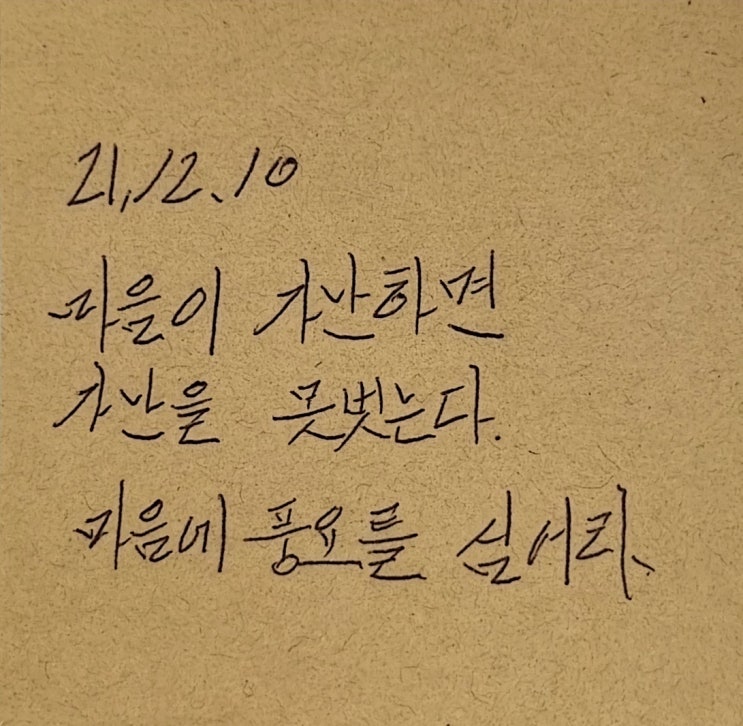 21, 12. 10
마음이 가난하면
가난을 못벗는다.
마음에 풍요를 심어라.